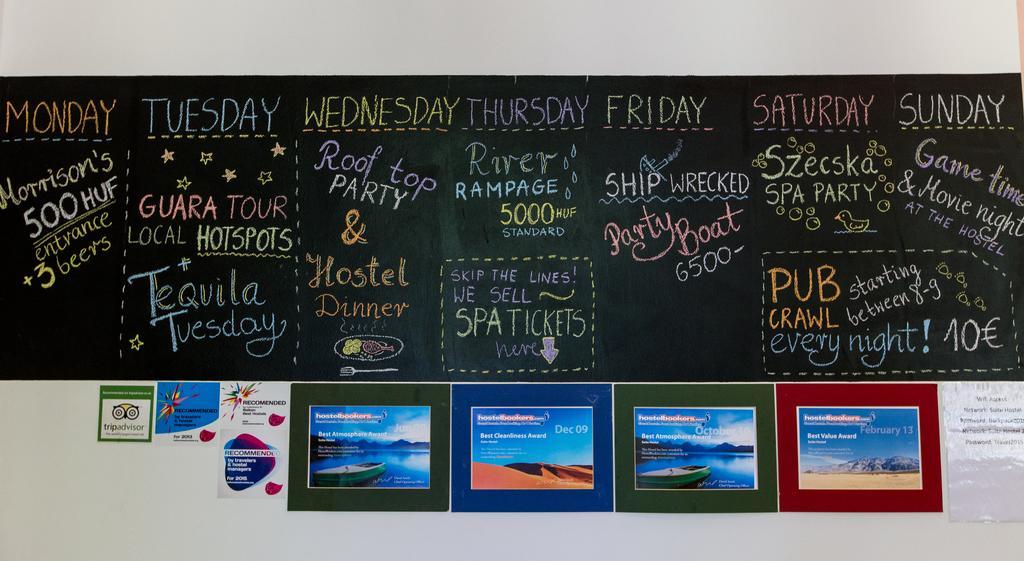 MONDAY
Morrison's
500 HUF
entrance
+3 beers
TUESDAY
GUARA TOUR
LOCAL HOTSPOTS
Tequila
Tuesday
WEDNESDAY
Roof top
PARTY
&
Hostel
Dinner
THURSDAY
River
RAMPAGE
5000 HUF
STANDARD
SKIP THE LINES!
WE SELL
SPA TICKETS
here
FRIDAY
SHIP WRECKED
Party Boat
6500-
SATURDAY
Szecska
SPA PARTY
SUNDAY
Game time
& Movie night
AT THE HOSTEL
PUB
CRAWL
starting
between 8-9
every night!
10€
tripadvisor
RECOMMENDED
by travelers
& hostel
managers
For 2013
RECOMENDED
Balkan
Best Hostels
RECOMMENDED
by travelers
& hostel
managers
For 2015
hostelbookers.com
Best Atmosphere Award
hostelbookers.com
Dec 09
Best Cleanliness Award
hostelbookers.com
October 10
Best Atmosphere Award
hostelbookers.com
February 13
Best Value Award
Wifi Access
Network: Suite Hostel
Password: Backpack2015
Network: Suite Hostel
Password: Travel2015